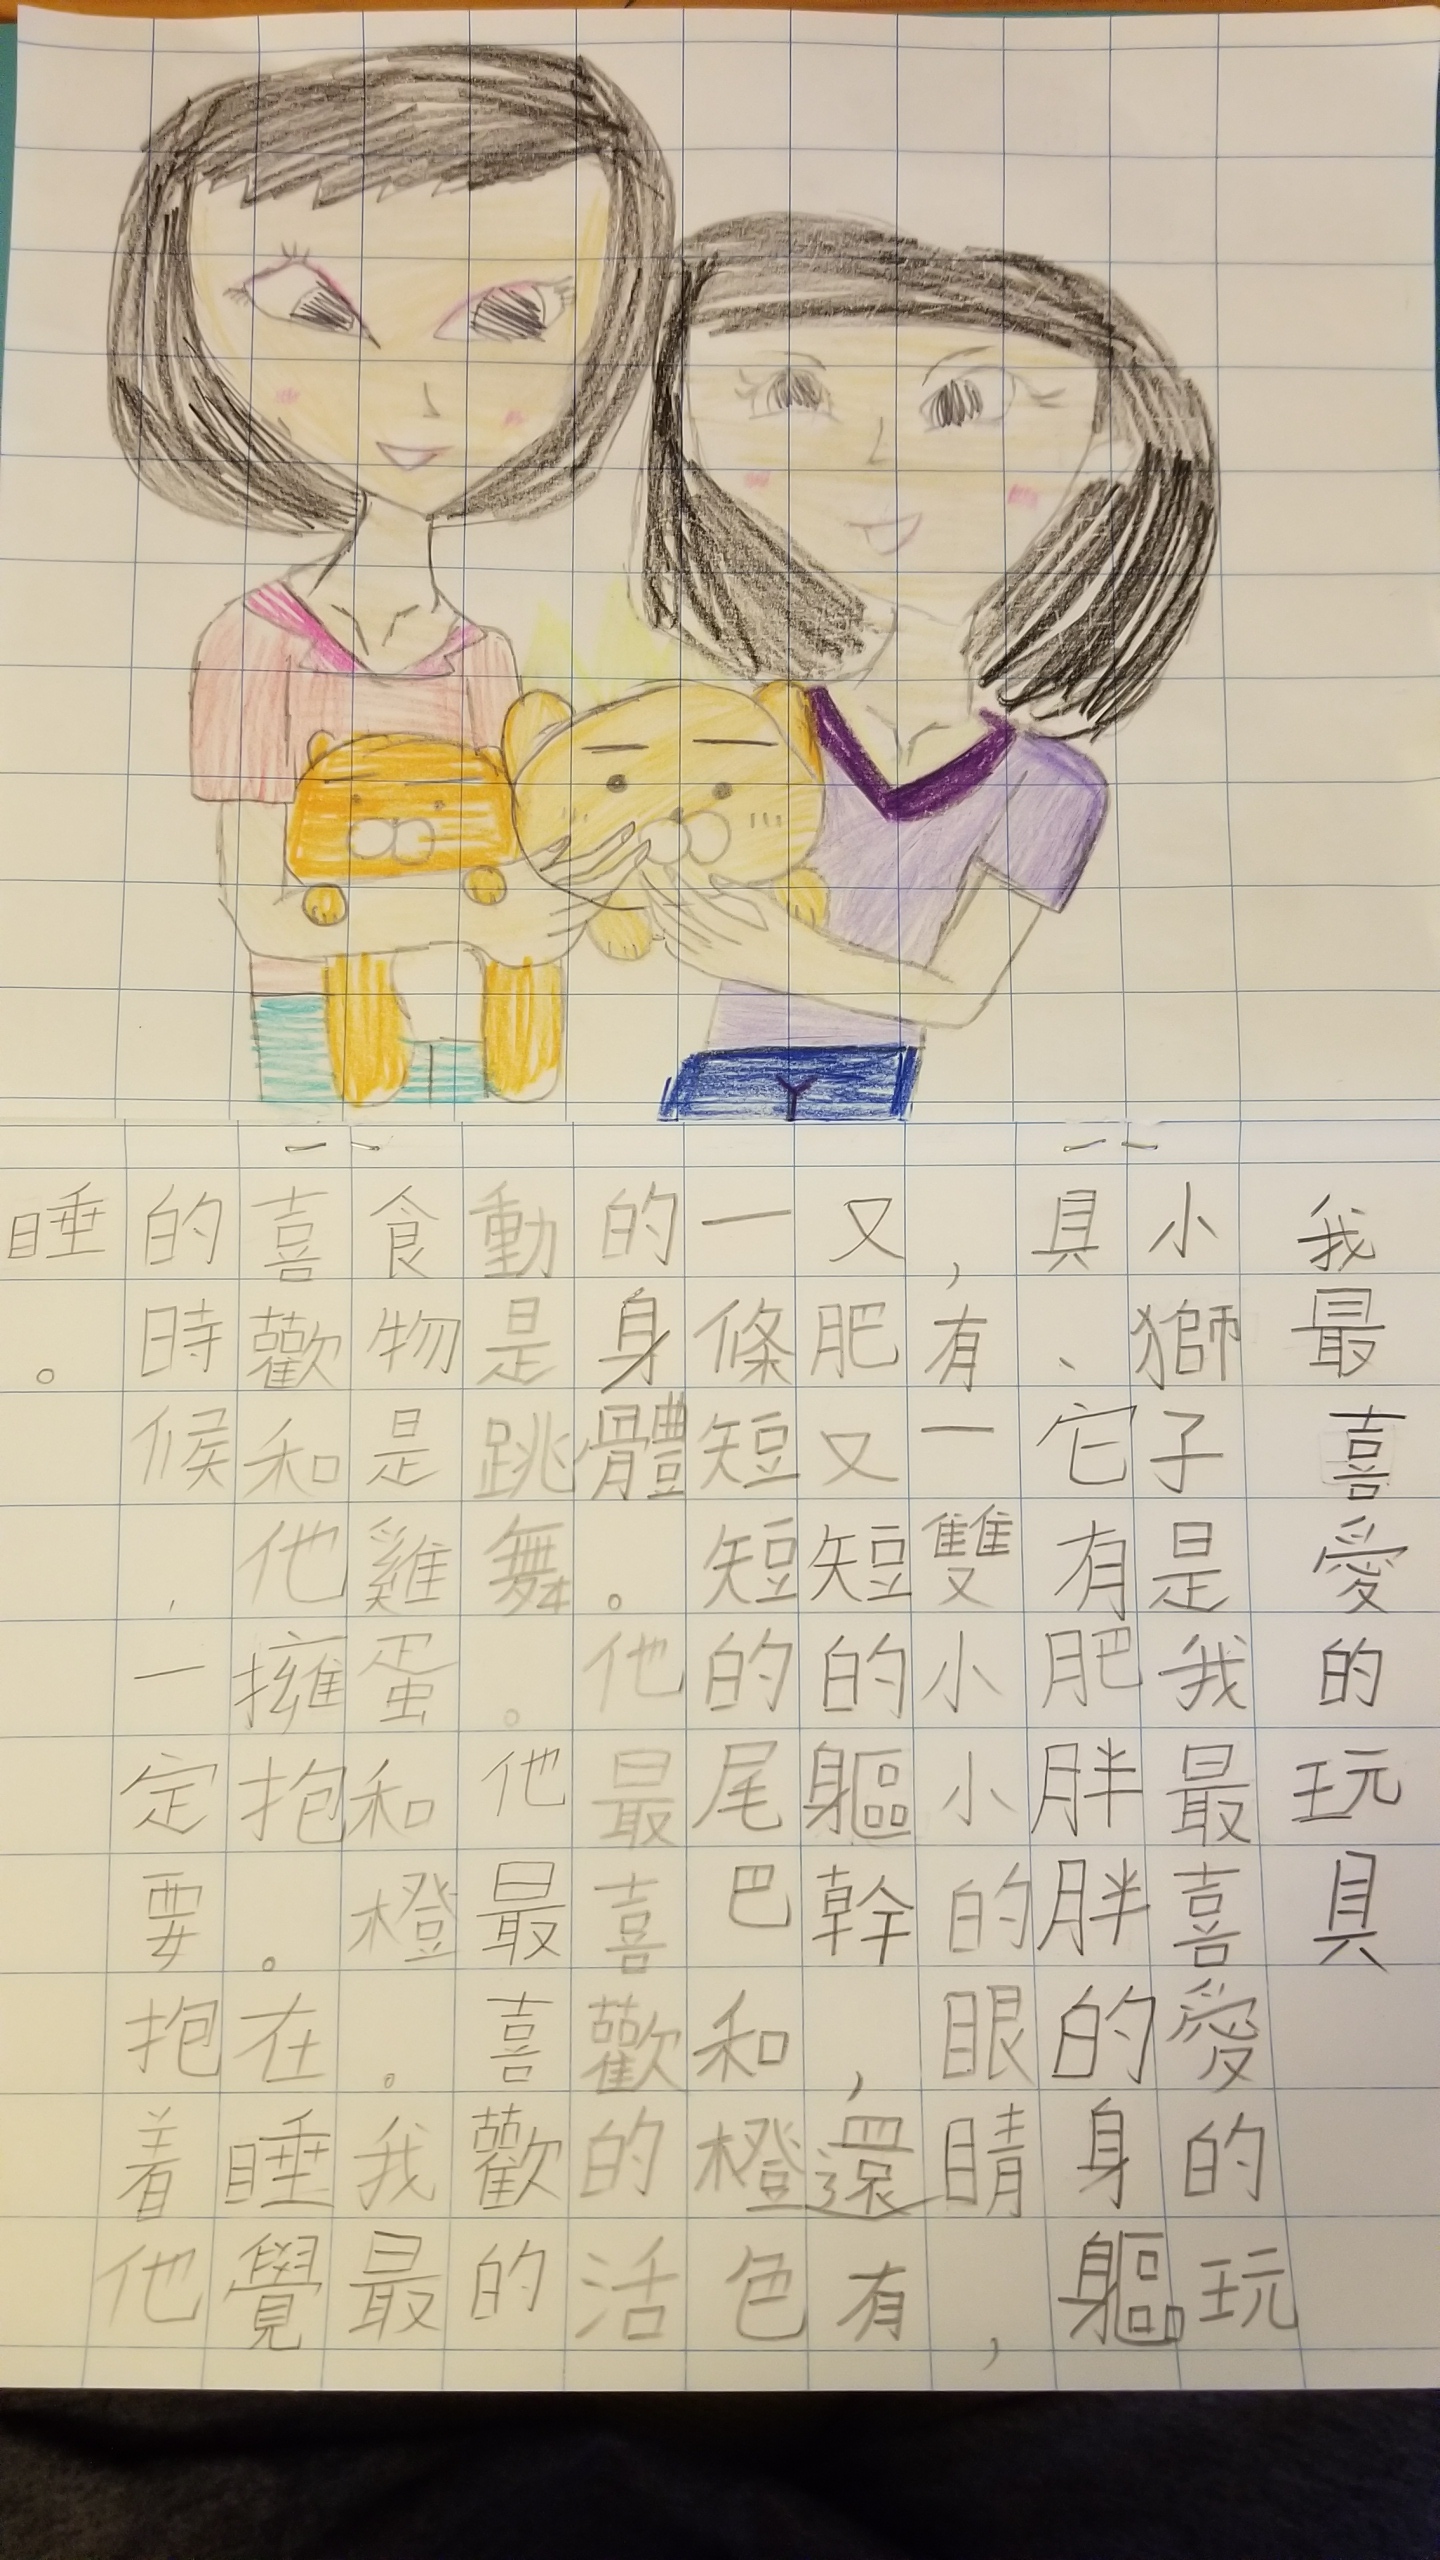 我最喜愛的玩具
小獅子是我最喜愛的玩
具、它有肥胖胖的身軀
,有一雙小小的眼睛,
又肥又短的軀幹,還有
一條短短的尾巴和橙色
的身體。他最喜歡的活
動是跳舞。他最喜歡的
食物是雞蛋和橙。我最
喜歡和他擁抱。在睡覺
的時候,一定要抱着他
睡。